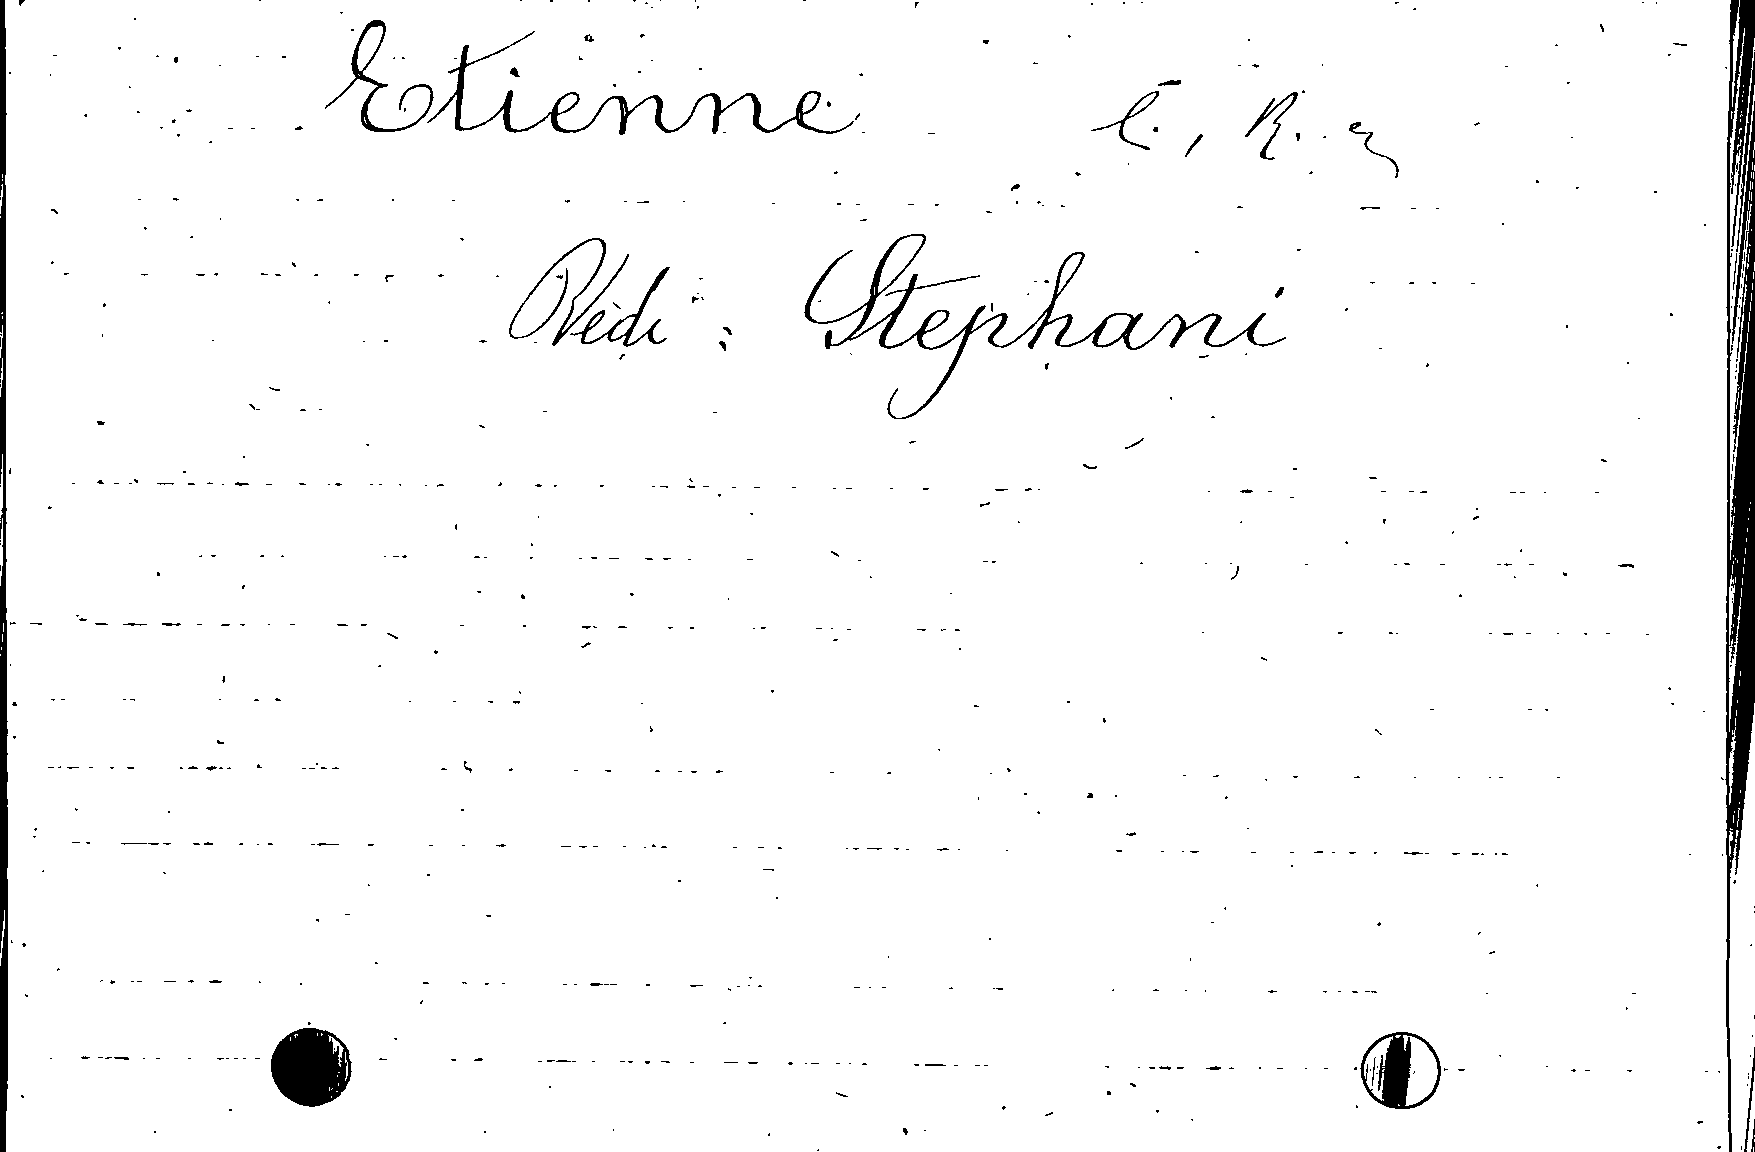 Etienne
Vèdi : Stephani